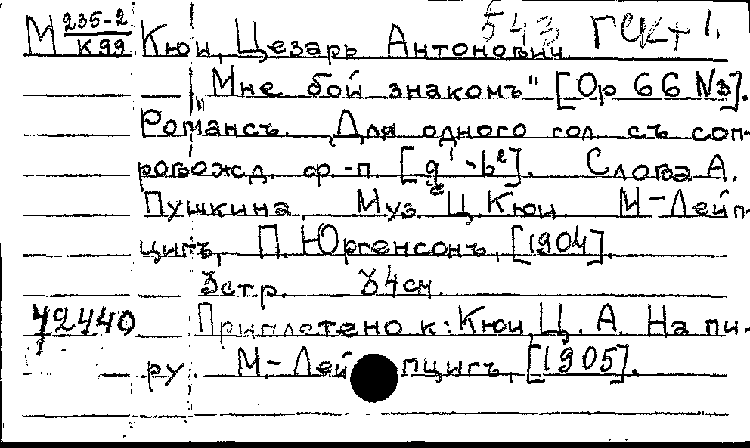 М 235-2 / К 99 Кюи, Цезарь Антонович 543 ГСК+ 1.
"Мне бой знакомъ" [Op 66 №3].
Романсъ. Для одного гол. съ соп-
ровожд. ф.-п. [g' - b²]. Слова А.
Пушкина. Муз. Ц. Кюи М-Лейп-
цигъ, П. Юргенсонъ, [1904].
3 стр. 34 см.
42440 Приплетено к: Кюи, Ц. А. На пи-
ру М.-Лейпцигъ, [1905].